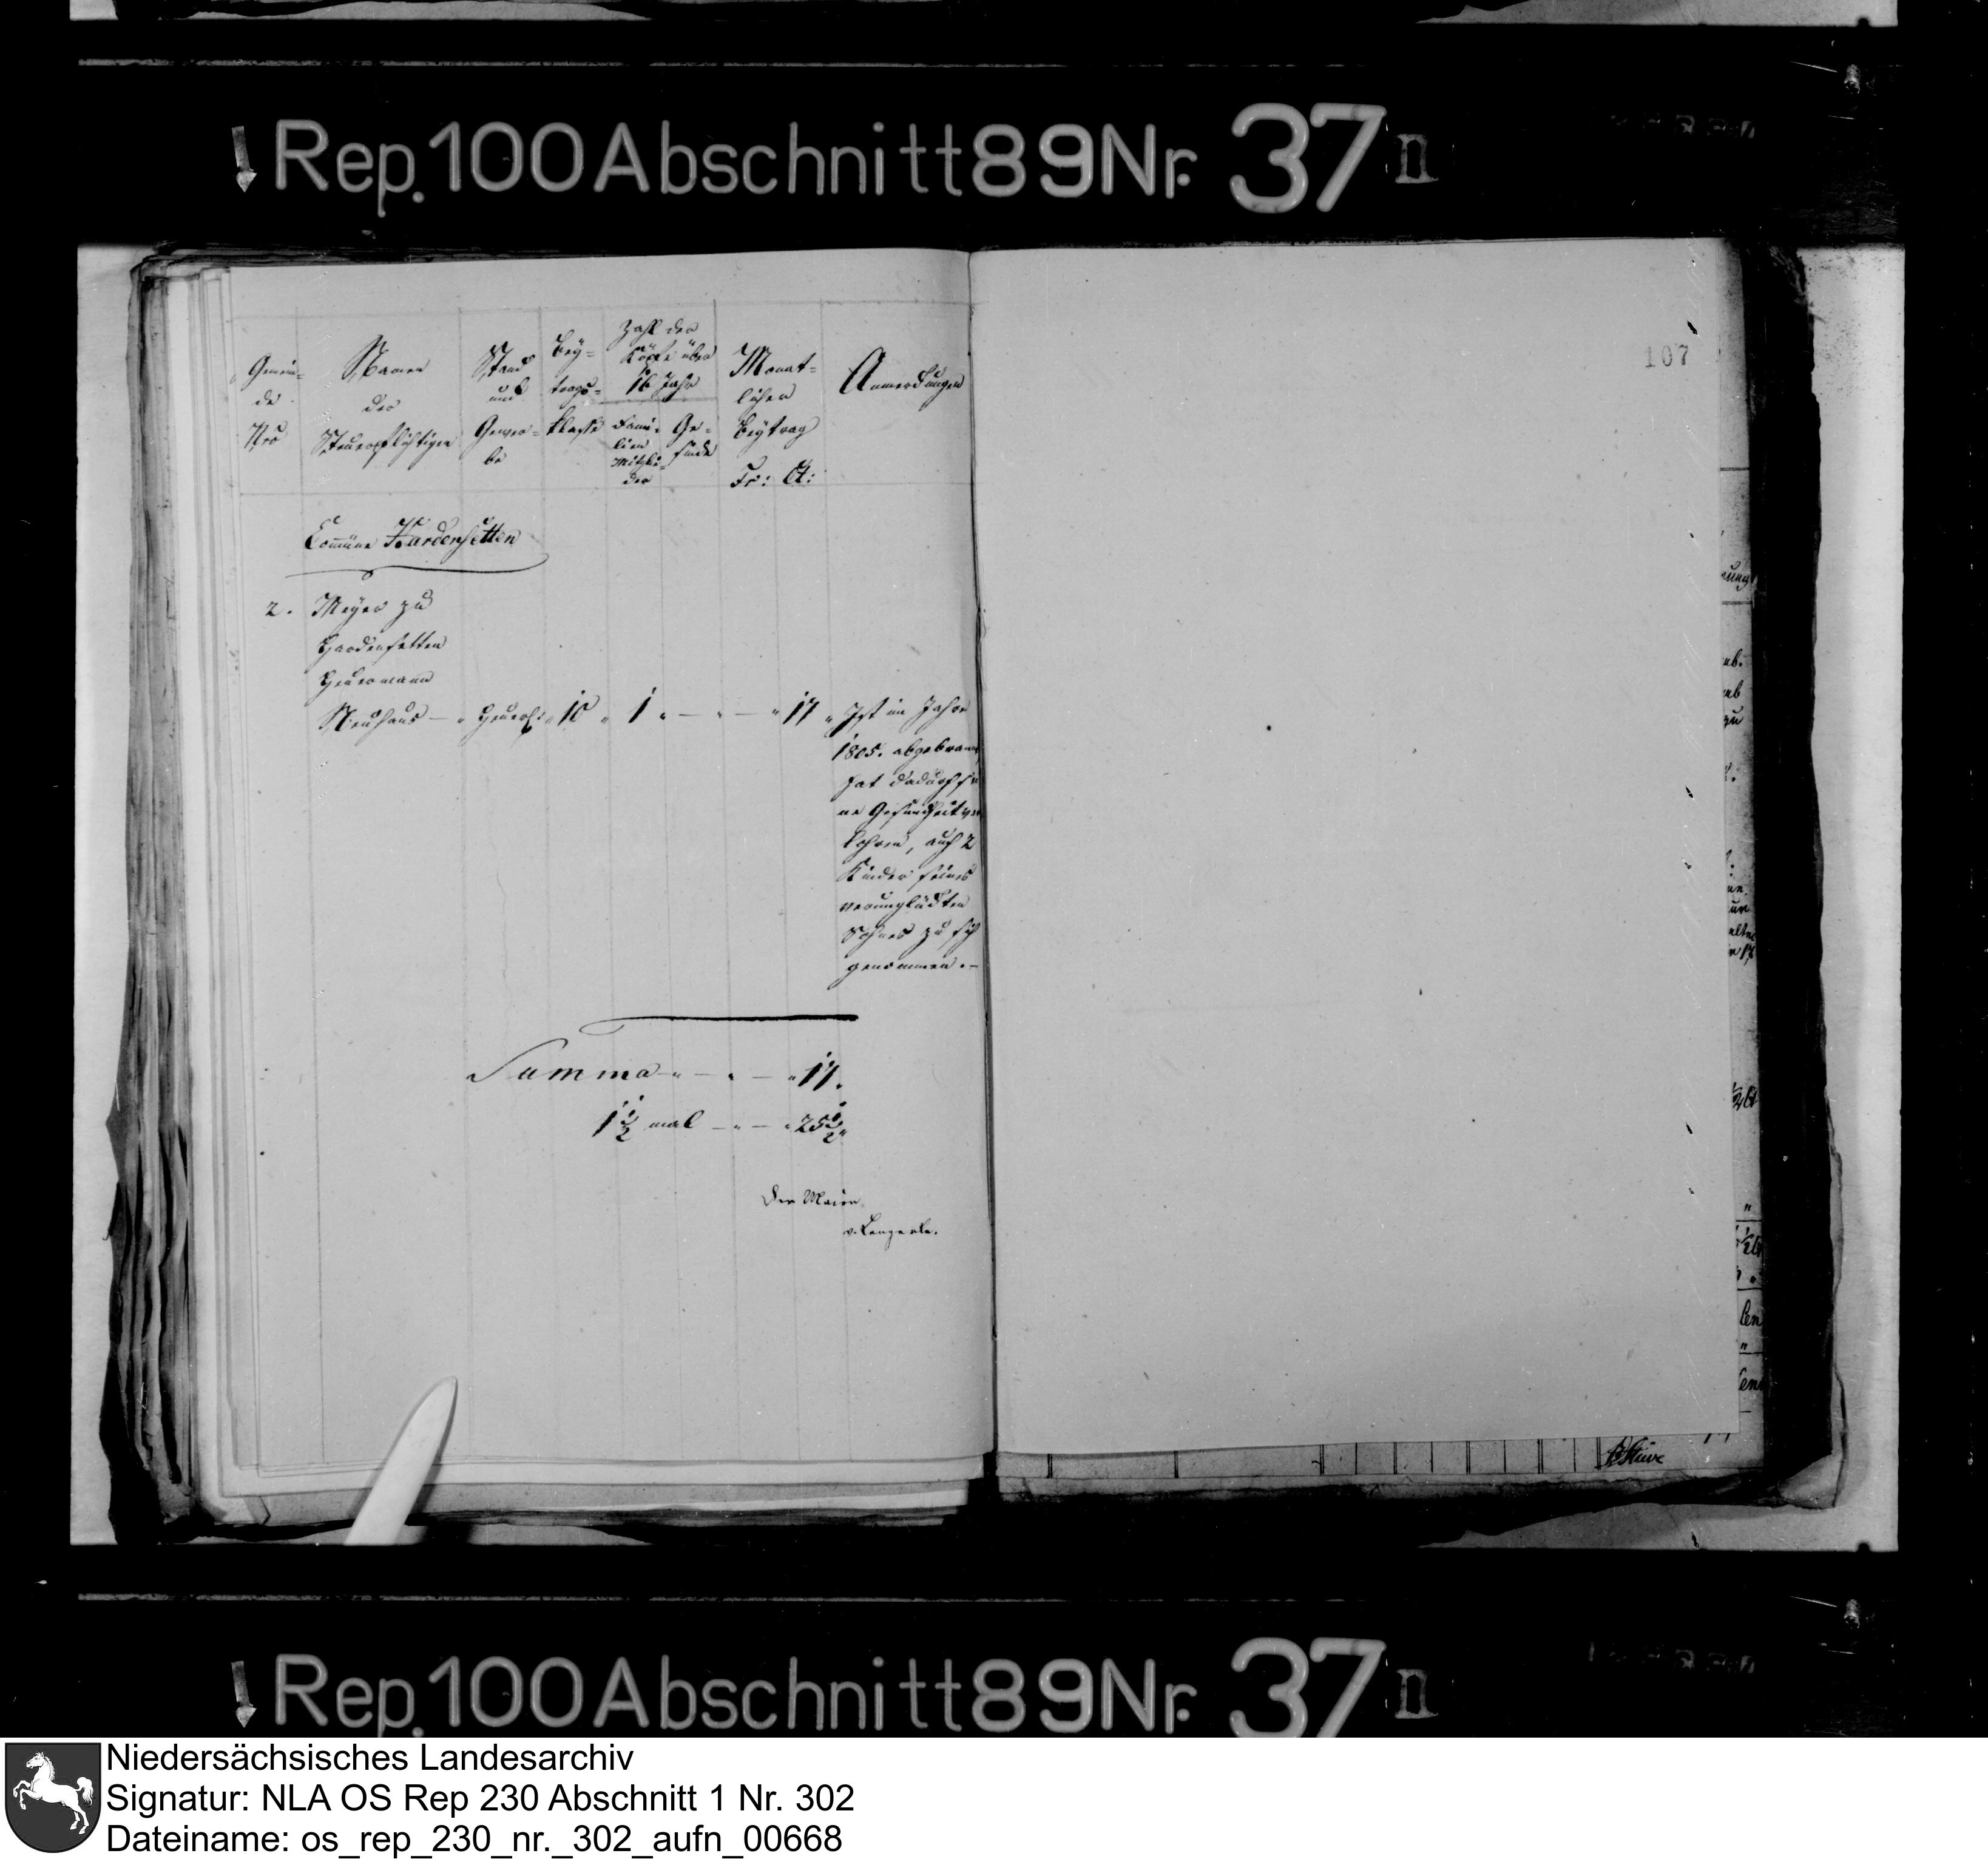 Rep. 100 Abschnitt 89 Nr. 37 n
107
Gemein-
de
Nro
Namen
der
Steuerpflichtigen
Stand
und
Gewer-
be
Bey-
trags-
klasse
Zahl der
Köpfe über
16 Jahr
Fami-
lien
Mitglie-
der
Ge-
sinde
Monat-
licher
Beytrag
Fr: Ct:
Anmerckungen
Commüne Hardensetten
2. Meyer zu
Hardensetten
Heuermann
Neuhaus — " Heuerl: " 10 " 1 " — " — " 17 " Ist im Jahre
1805. abgebrannt
hat dadurch sei
ne Gesundheit ver
lohren, auch 2
Kinder seines
verunglückten
Sohnes zu sich
genommen. —
Summa — " — " — " 17.
1 1/2 mal — " — " 25 1/2 "
Der Maire
v. Lengerke.
Rep. 100 Abschnitt 89 Nr. 37 n
Niedersächsisches Landesarchiv
Signatur: NLA OS Rep 230 Abschnitt 1 Nr. 302
Dateiname: os_rep_230_nr._302_aufn_00668